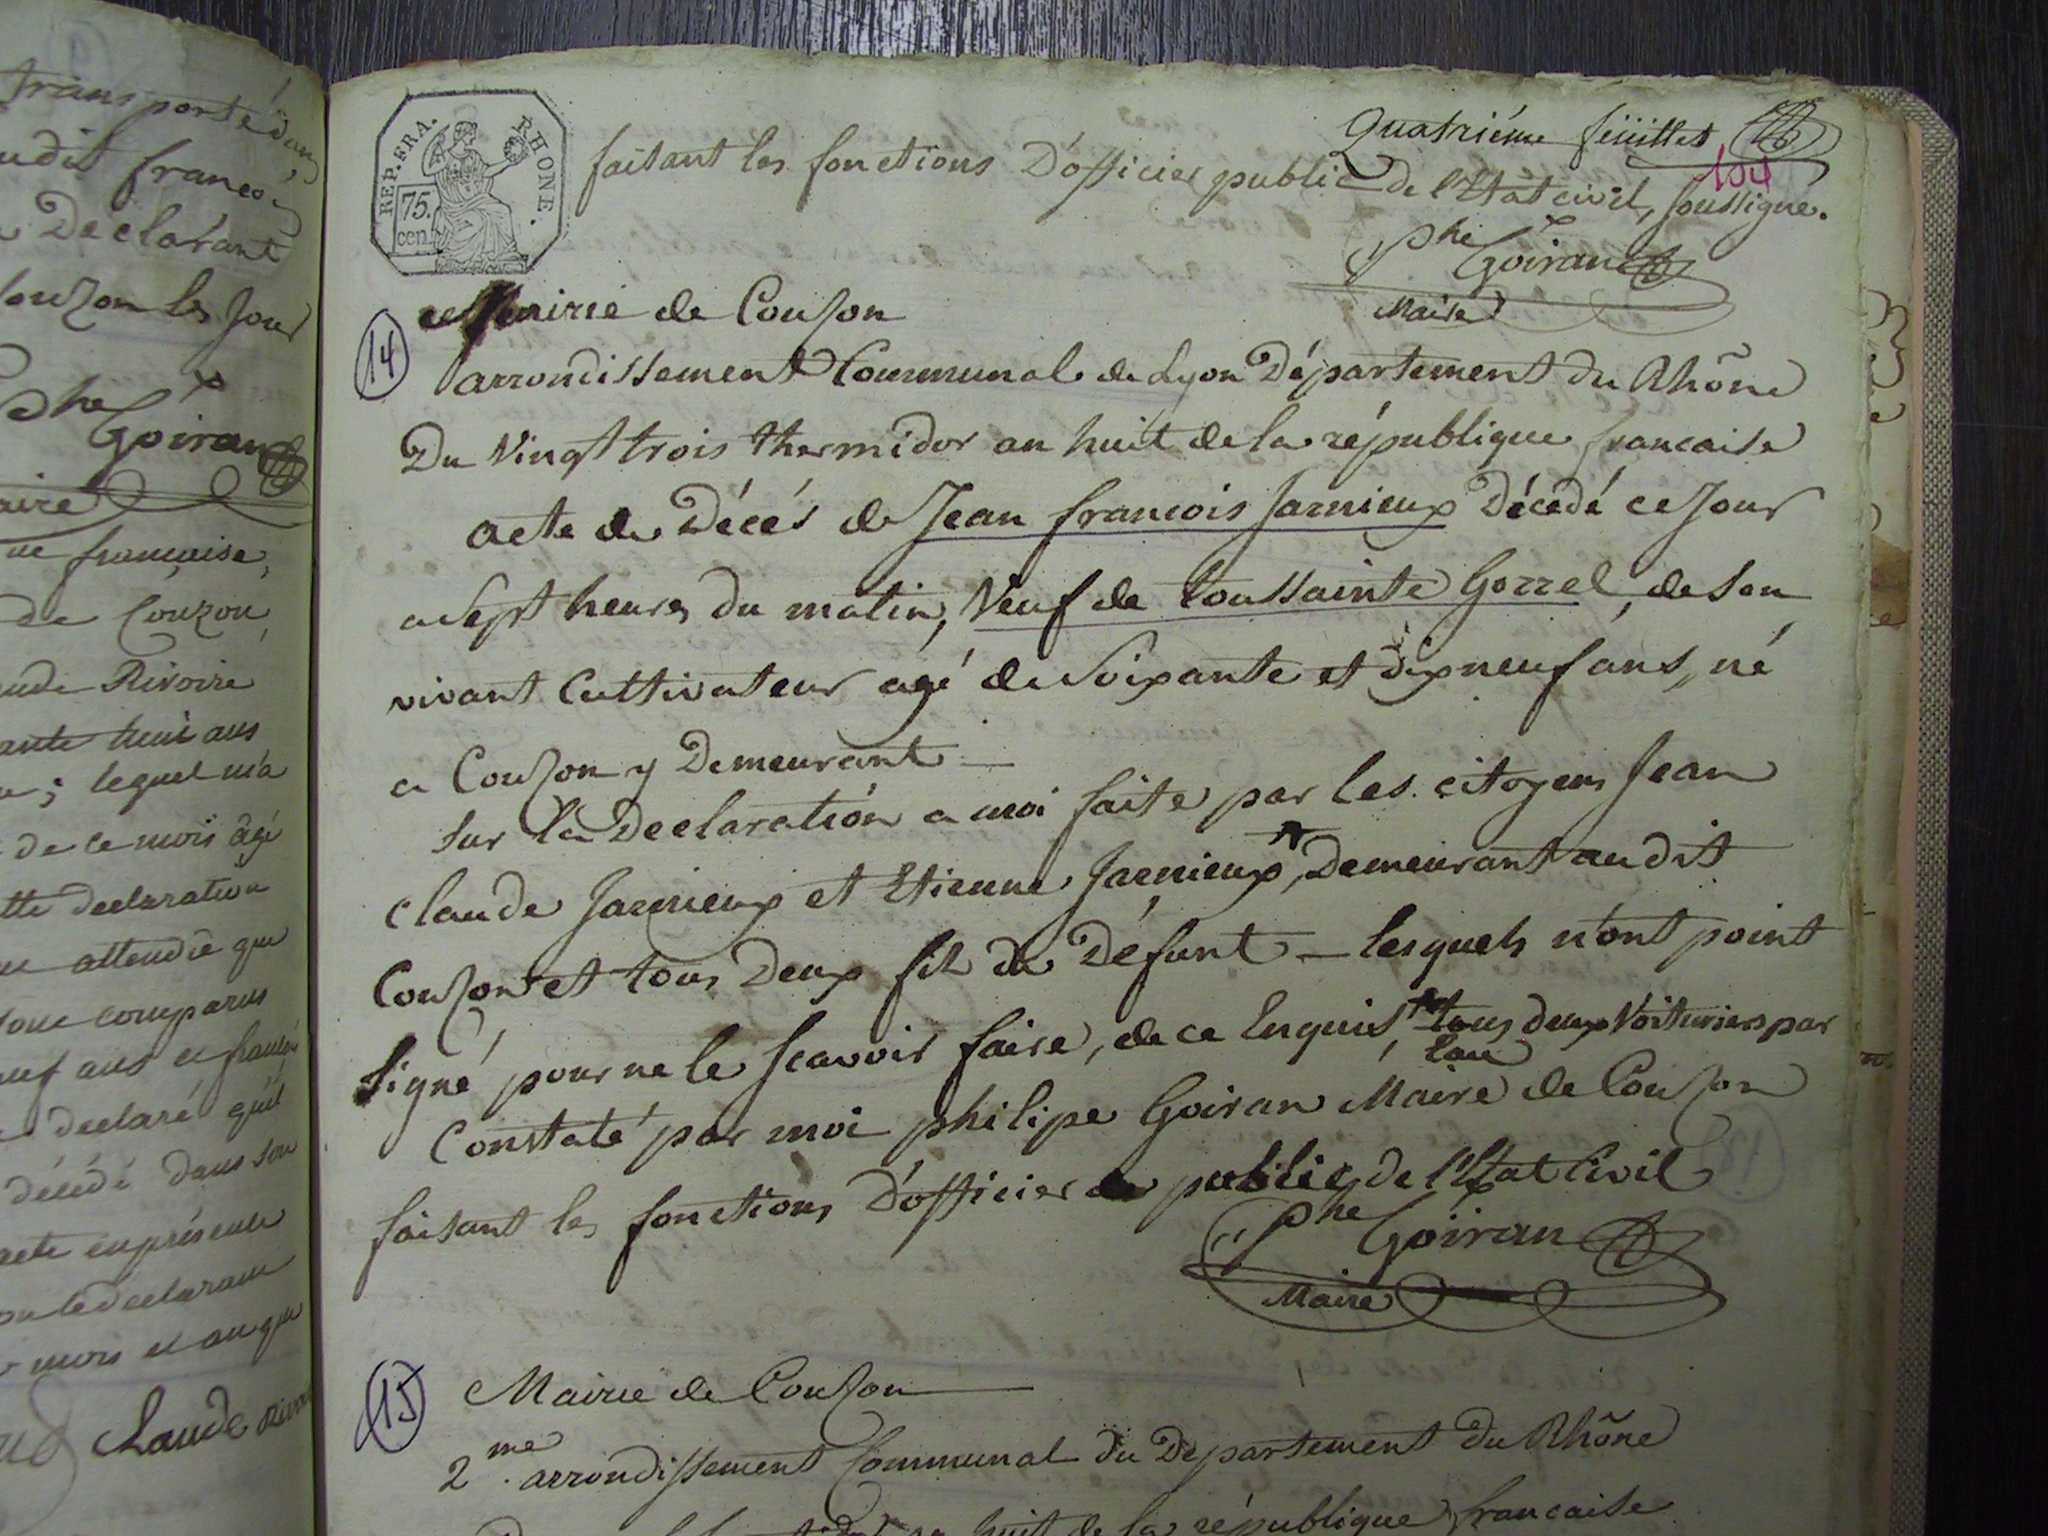 transporté dans
udit françois
Declarant
Couzon les Jour
phe Goiran
aire
ue française,
de Couzon
aude Rivoire
ante huit ans
; lequel m'a
de ce mois âgé
tte declaration
attendû que
comparus
euf ans et
declaré qu'il
décédé dans son
acte en présence
declarant
mois et an que
Claude
REP. FRA. RHONE.
75.
cen.
Quatriéme feüillet
104
faisant les fonctions D'officier public de l'Etat civil, soussigné.
phe Goiran
Maire
14
Mairie de Couzon
arrondissement Communal de Lyon Département du Rhône
Du Vingt trois thermidor an huit de la république francaise
acte de Décés de Jean francois Jarnieux Décédé ce Jour
a Sept heures du matin, Veuf de toussainte Gorrel, de son
vivant Cultivateur agé de Soixante et dix neuf ans, né
a Couzon y Demeurant
sur la Declaration a moi faite par les citoyens Jean
claude Jarnieux et Etienne Jarnieux, Demeurant audit
Couzon et tous Deux fils du Défunt — lesquels n'ont point
signé pour ne le scavoir faire, de ce Enquis, tous deux Voituriers par
eau
Constaté par moi philipe Goiran Maire de Couzon
faisant les fonctions D'officier public de l'Etat Civil
phe Goiran
Maire
15
Mairie de Couzon
2me. arrondissement Communal du Departement du Rhône
huit de la république francaise